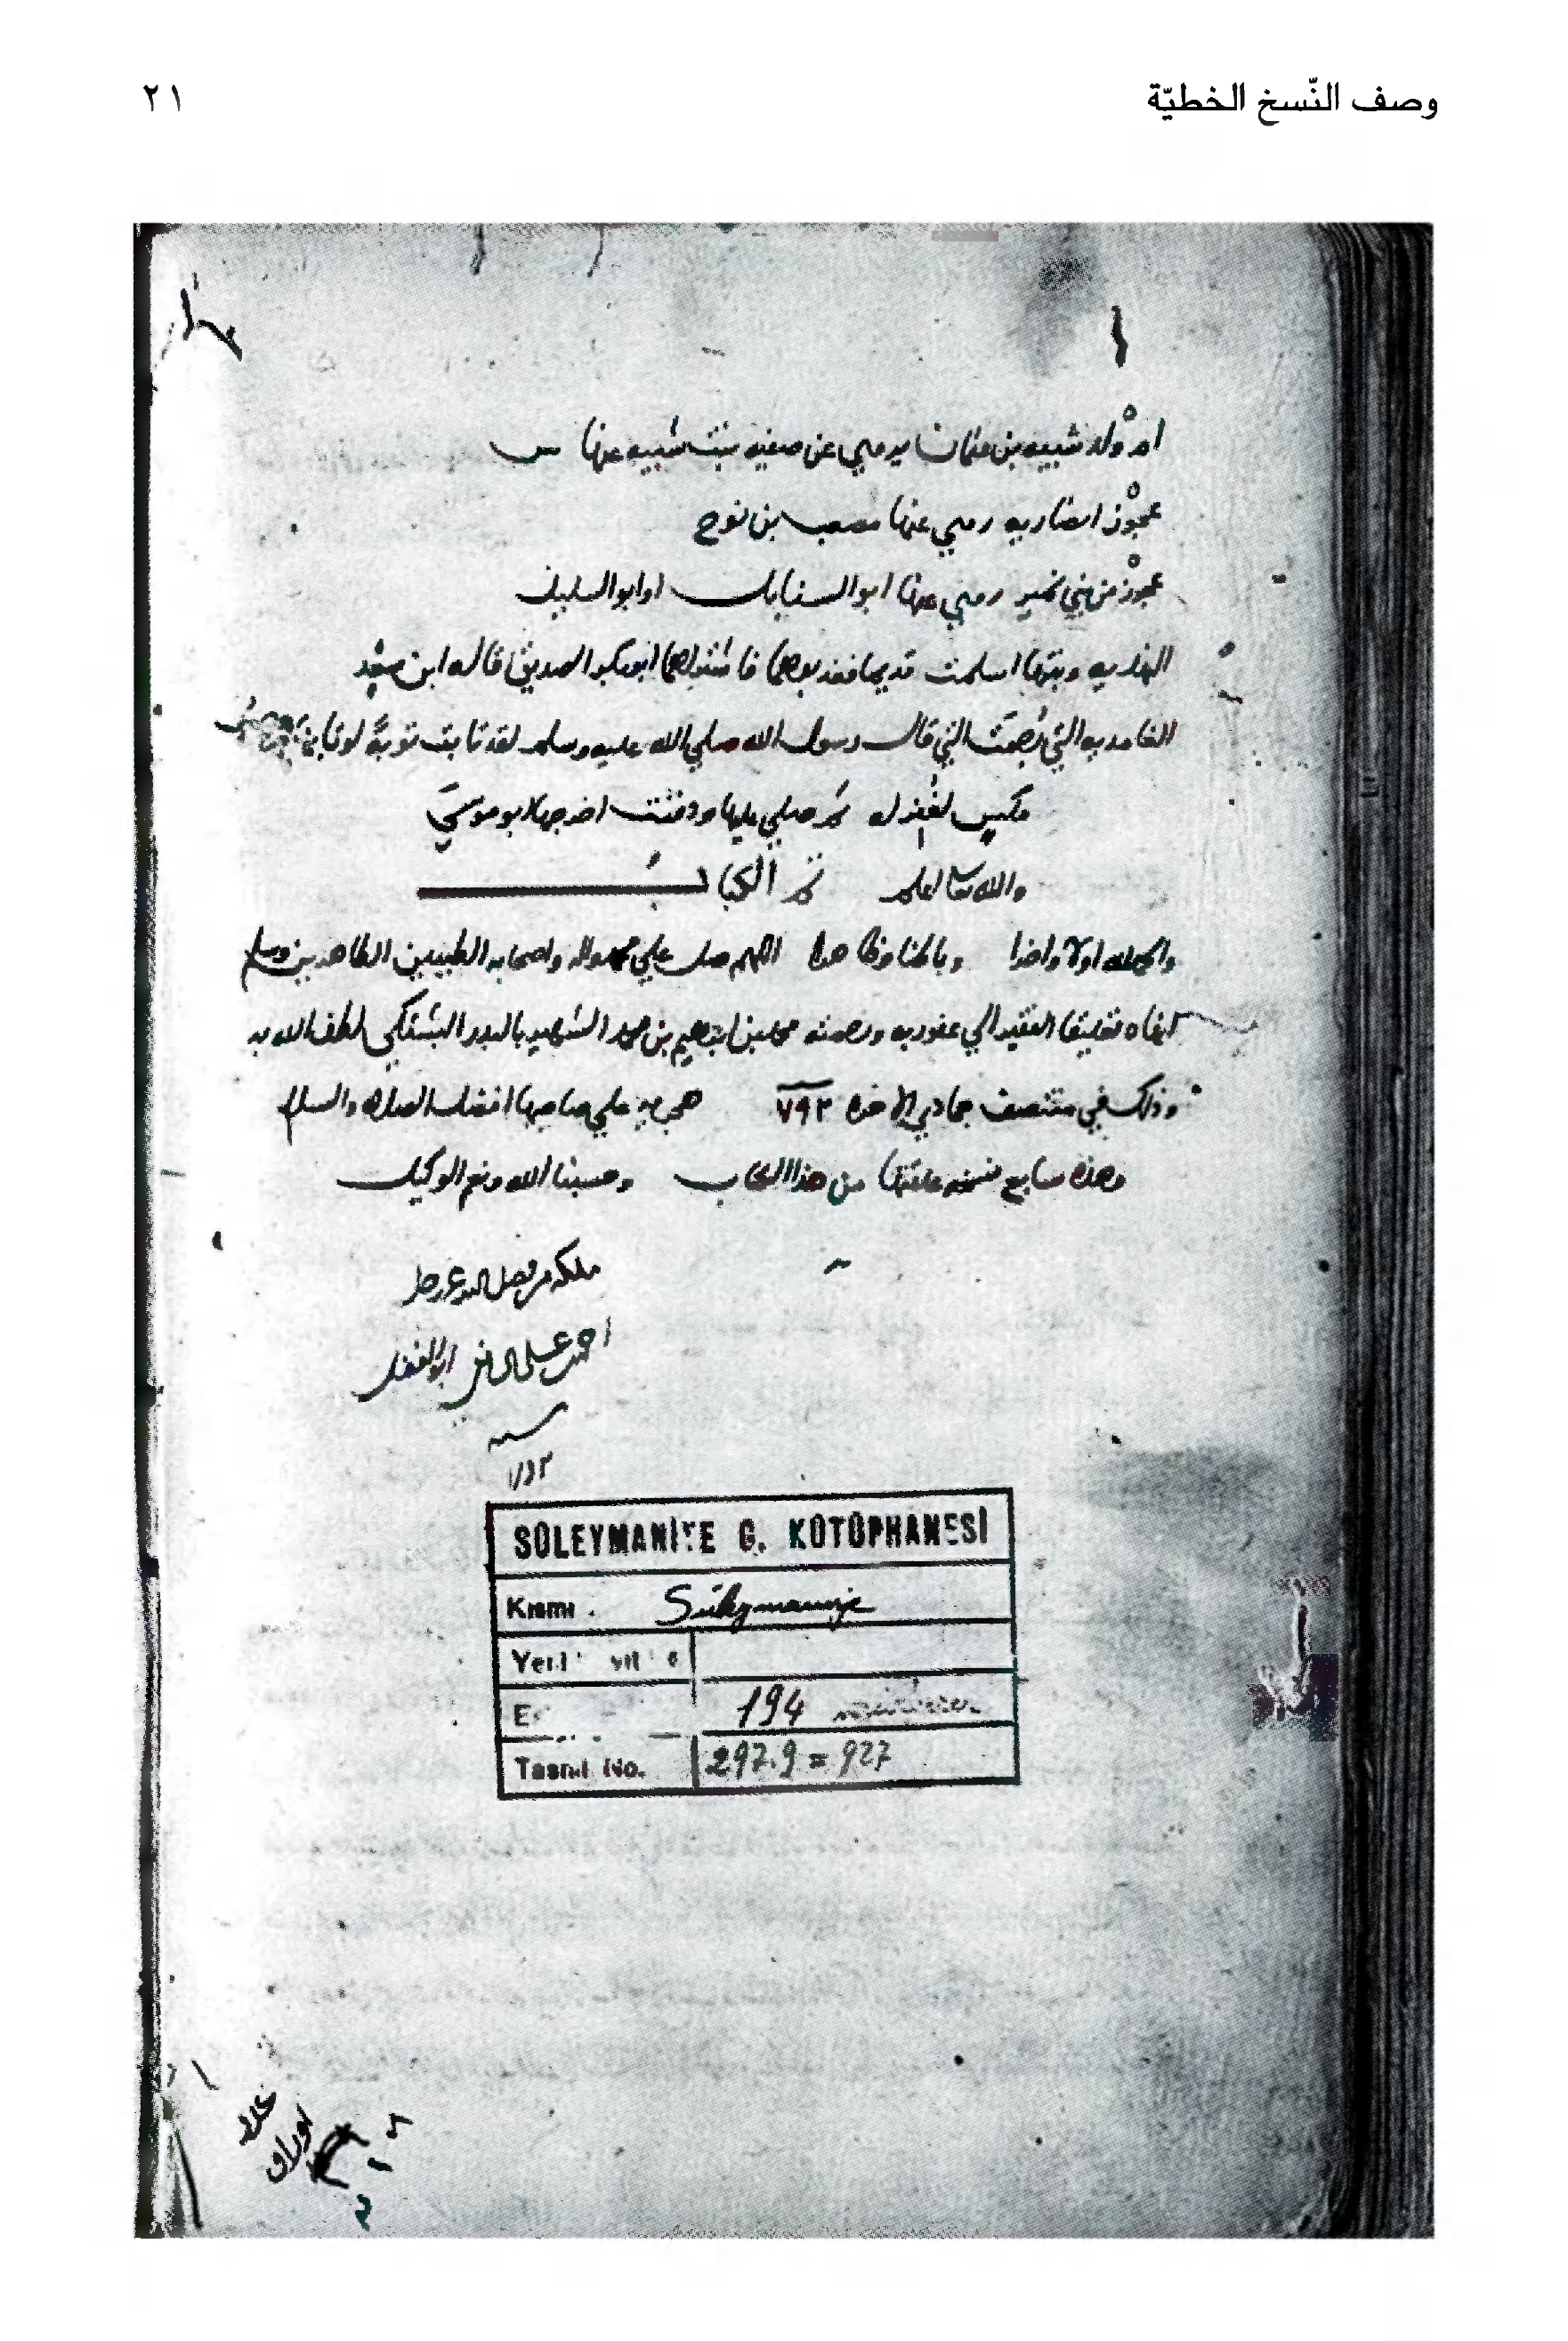 وصف النّسخ الخطيّة
٢١
ام ولد شيبه بن عثمان يروي عن صفيه بنت شيبه عنها س
عجوز انصاريه روي عنها مصعب بن نوح
عجوز من بني نمير روي عنها ابو السنابل او ابو السليل
النهديه وبنتها اسلمت قديما فاشتراهما ابو بكر الصديق قاله ابن سعد
الغامديه التي رجمت التي قال رسول الله صلي الله عليه وسلم لقد تابت توبة لو تابها صاحب
مكس لغفر له ثم صلي عليها ودفنت اخرجها ابو موسي
والله تعالى اعلم تم الكتاب
والحمد لله اولا واخرا وباطنا وظاهرا اللهم صل علي محمد واله واصحابه الطيبين الطاهرين وسلم
انهاه تعليقا الفقير الي عفو ربه ورحمته محمد بن ابراهيم بن محمد الشهير بالبدر البشتكي لطف الله به
وذلك في منتصف جمادي الاخره ٧٩٢ هجريه علي صاحبها افضل الصلاه والسلام
وهذه سابع نسخه علقتها من هذا الكتاب وحسبنا الله ونعم الوكيل
ملكه من فضل
احمد علي ابو الفضل
سنه
SÜLEYMANİYE G. KÜTÜPHANESİ
Kısmı Süleymaniye
194
Tasnif No. 297.9 = 927
عدد
اوراق